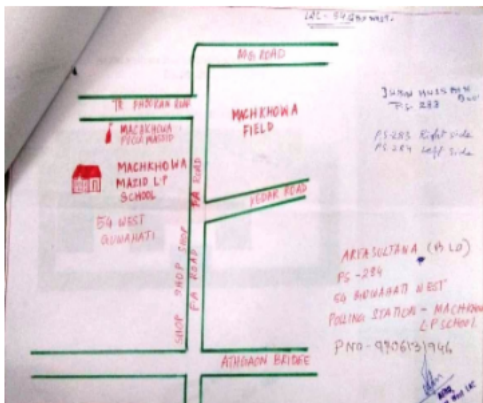 LAC - 54 GHY WEST
M.G ROAD
TR. PHOOKAN ROAD
MACHKHOWA
MASJID
MACHKHOWA
FIELD
MACHKHOWA
MAZID L.P
SCHOOL
54 WEST
GUWAHATI
FA ROAD
KEDAR ROAD
SHOP SHOP SHOP
FA ROAD
ATHGAON BRIDGE
PS 283 Right side
PS-284 Left side
(BLO)
PS - 284
54 GUWAHATI WEST
POLLING STATION - MACHKHOWA
L P SCHOOL
P NO- 9706131946